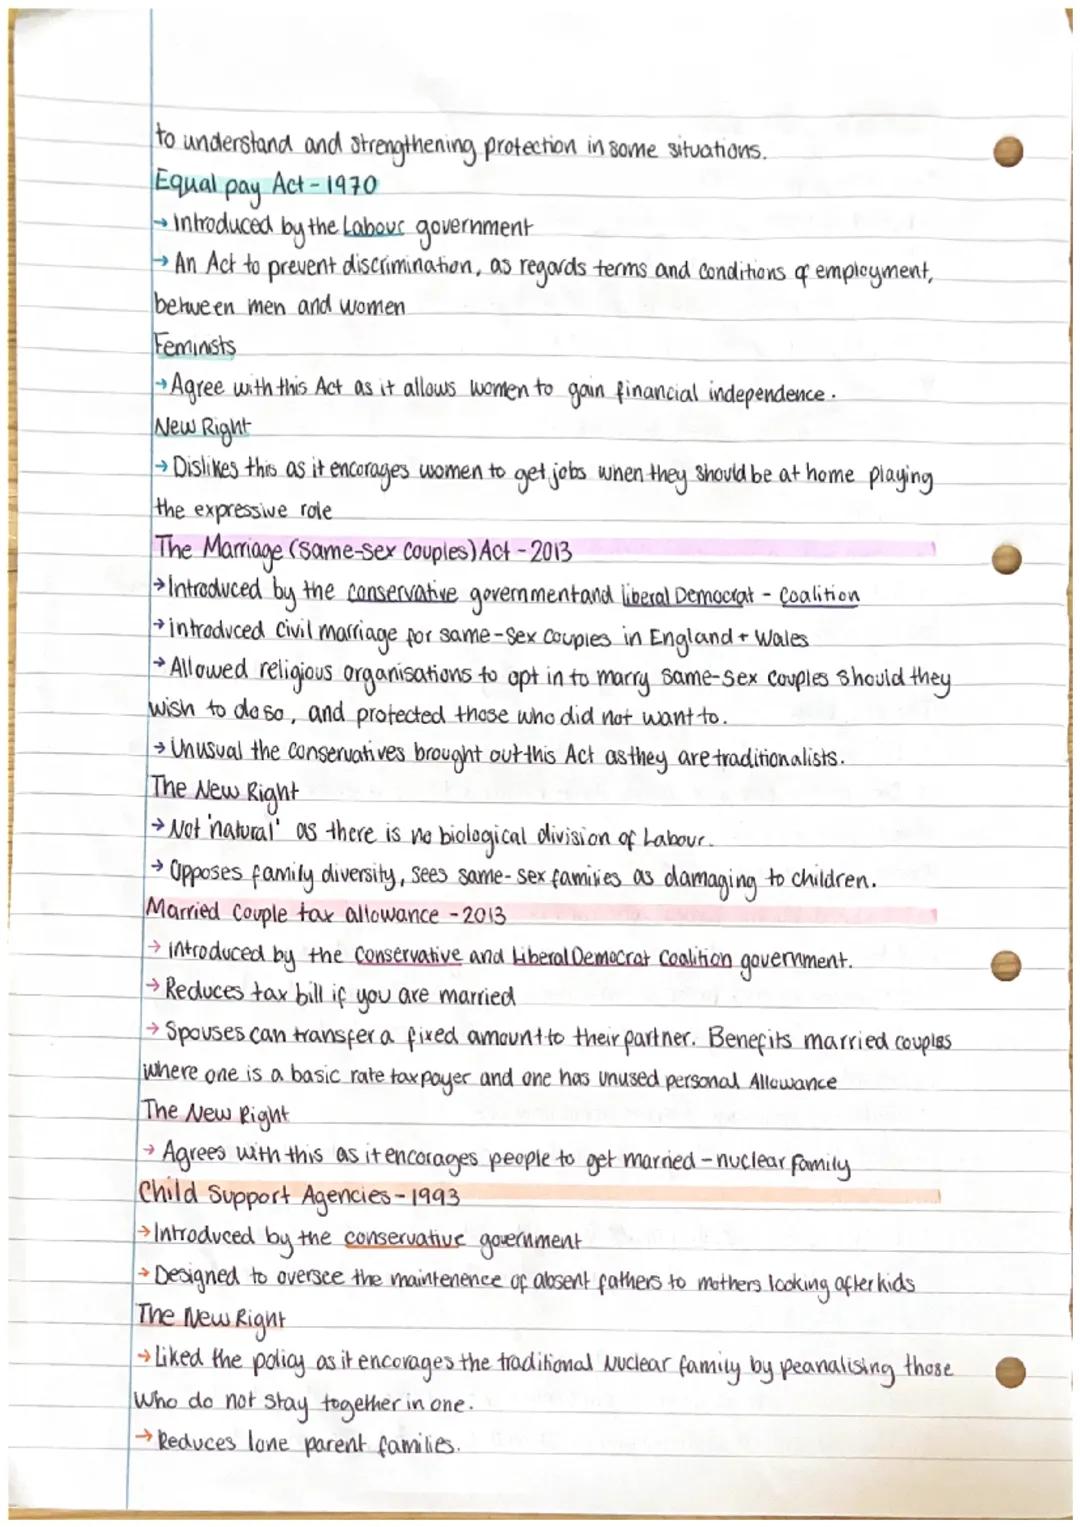 to understand and strengthening protection in some situations.
Equal pay Act - 1970
→ Introduced by the Labour government
→ An Act to prevent discrimination, as regards terms and conditions of employment,
between men and women
Feminists
→ Agree with this Act as it allows women to gain financial independence.
New Right
→ Dislikes this as it encorages women to get jobs when they should be at home playing
the expressive role
The Marriage (Same-sex couples) Act - 2013
→ Introduced by the conservative government and liberal Democrat - Coalition
→ introduced civil marriage for same-sex couples in England + Wales
→ Allowed religious organisations to opt in to marry same-sex couples should they
wish to do so, and protected those who did not want to.
→ Unusual the conservatives brought out this Act as they are traditionalists.
The New Right
→ Not 'natural' as there is no biological division of Labour.
→ Opposes family diversity, sees same-sex families as damaging to children.
Married couple tax allowance - 2013
→ introduced by the Conservative and Liberal Democrat Coalition government.
→ Reduces tax bill if you are married
→ Spouses can transfer a fixed amount to their partner. Benefits married couples
where one is a basic rate taxpayer and one has unused personal Allowance
The New Right
→ Agrees with this as it encorages people to get married - nuclear family
Child Support Agencies - 1993
→ Introduced by the conservative government
→ Designed to oversee the maintenence of absent fathers to mothers looking after kids
The New Right
→ Liked the policy as it encorages the traditional Nuclear family by peanalising those
who do not stay together in one.
→ Reduces lone parent families.